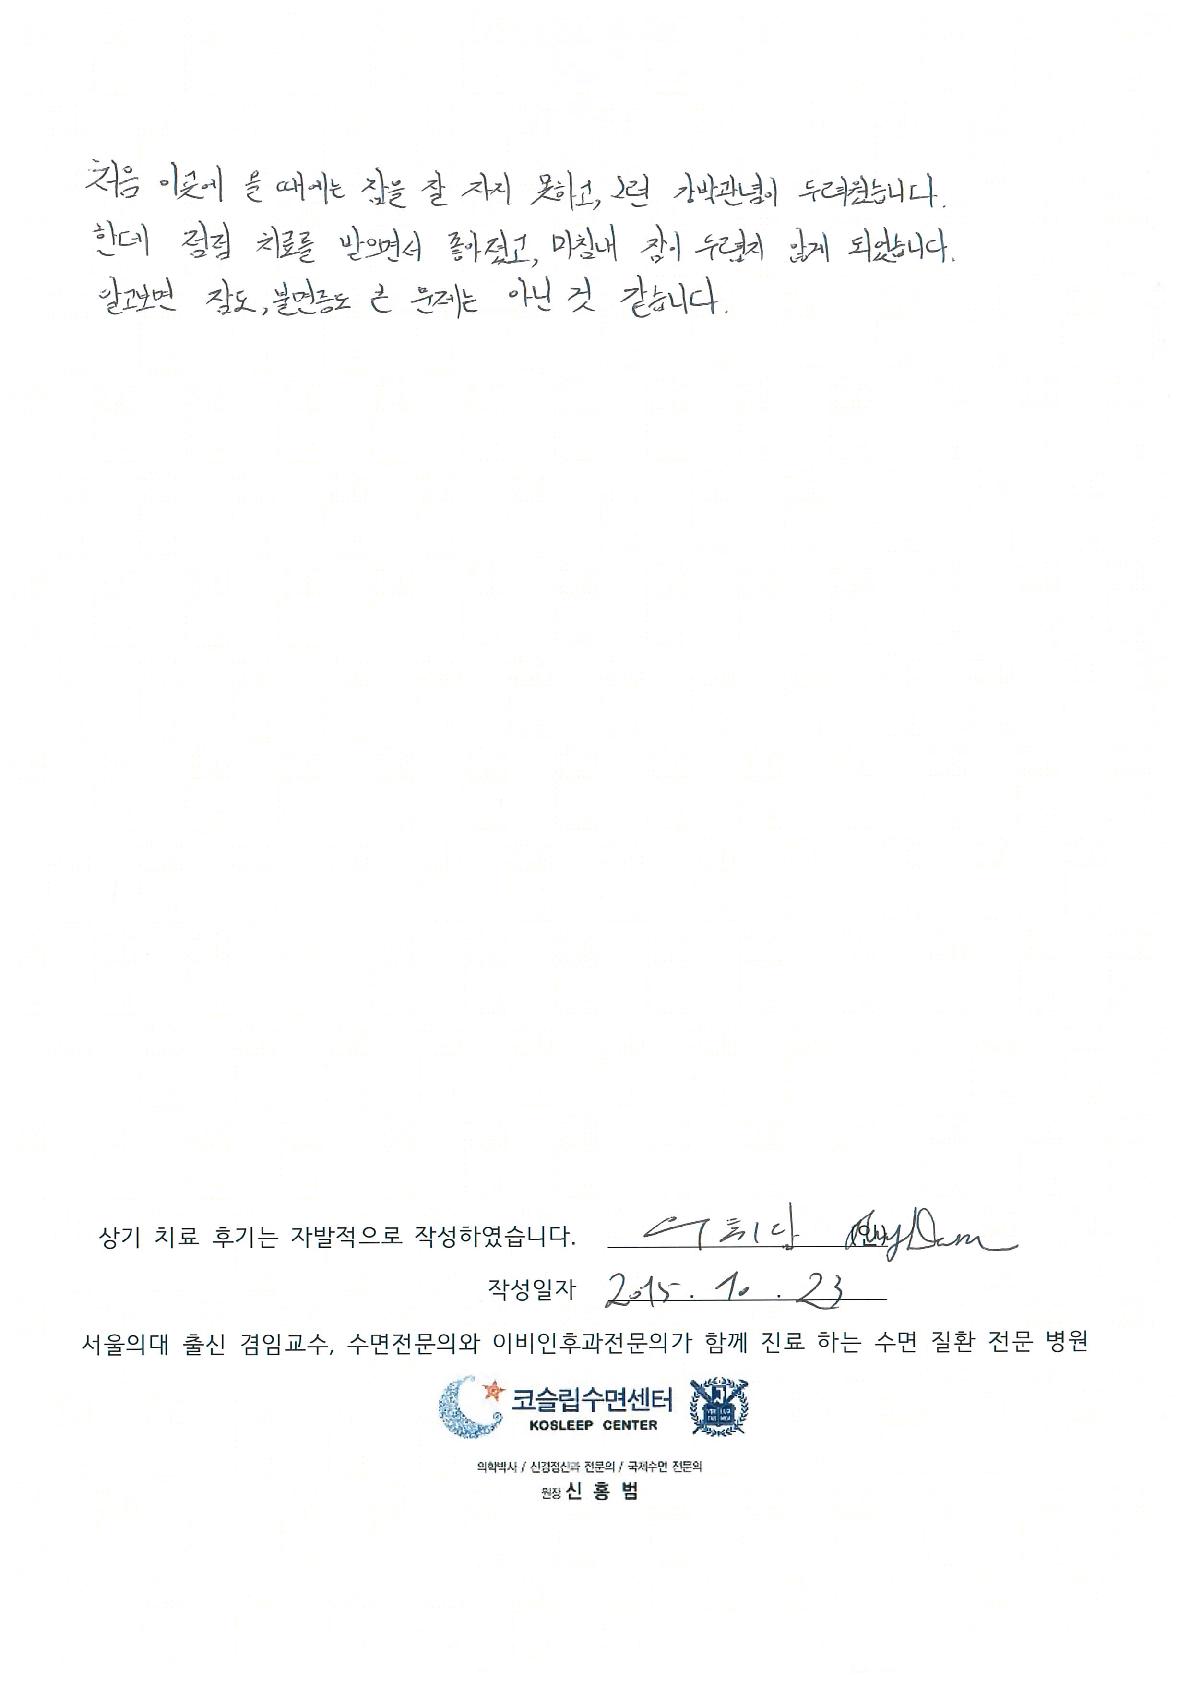 처음 이곳에 올 때에는 잠을 잘 자지 못하고, 그런 강박관념이 두려웠습니다.
한데 점점 치료를 받으면서 좋아졌고, 마침내 잠이 두렵지 않게 되었습니다.
알고보면 잠도, 불면증도 큰 문제는 아닌 것 같습니다.
상기 치료 후기는 자발적으로 작성하였습니다.
작성일자 2015. 10. 23
서울의대 출신 겸임교수, 수면전문의와 이비인후과전문의가 함께 진료 하는 수면 질환 전문 병원
코슬립수면센터
KOSLEEP CENTER
의학박사 / 신경정신과 전문의 / 국제수면 전문의
원장 신 홍 범